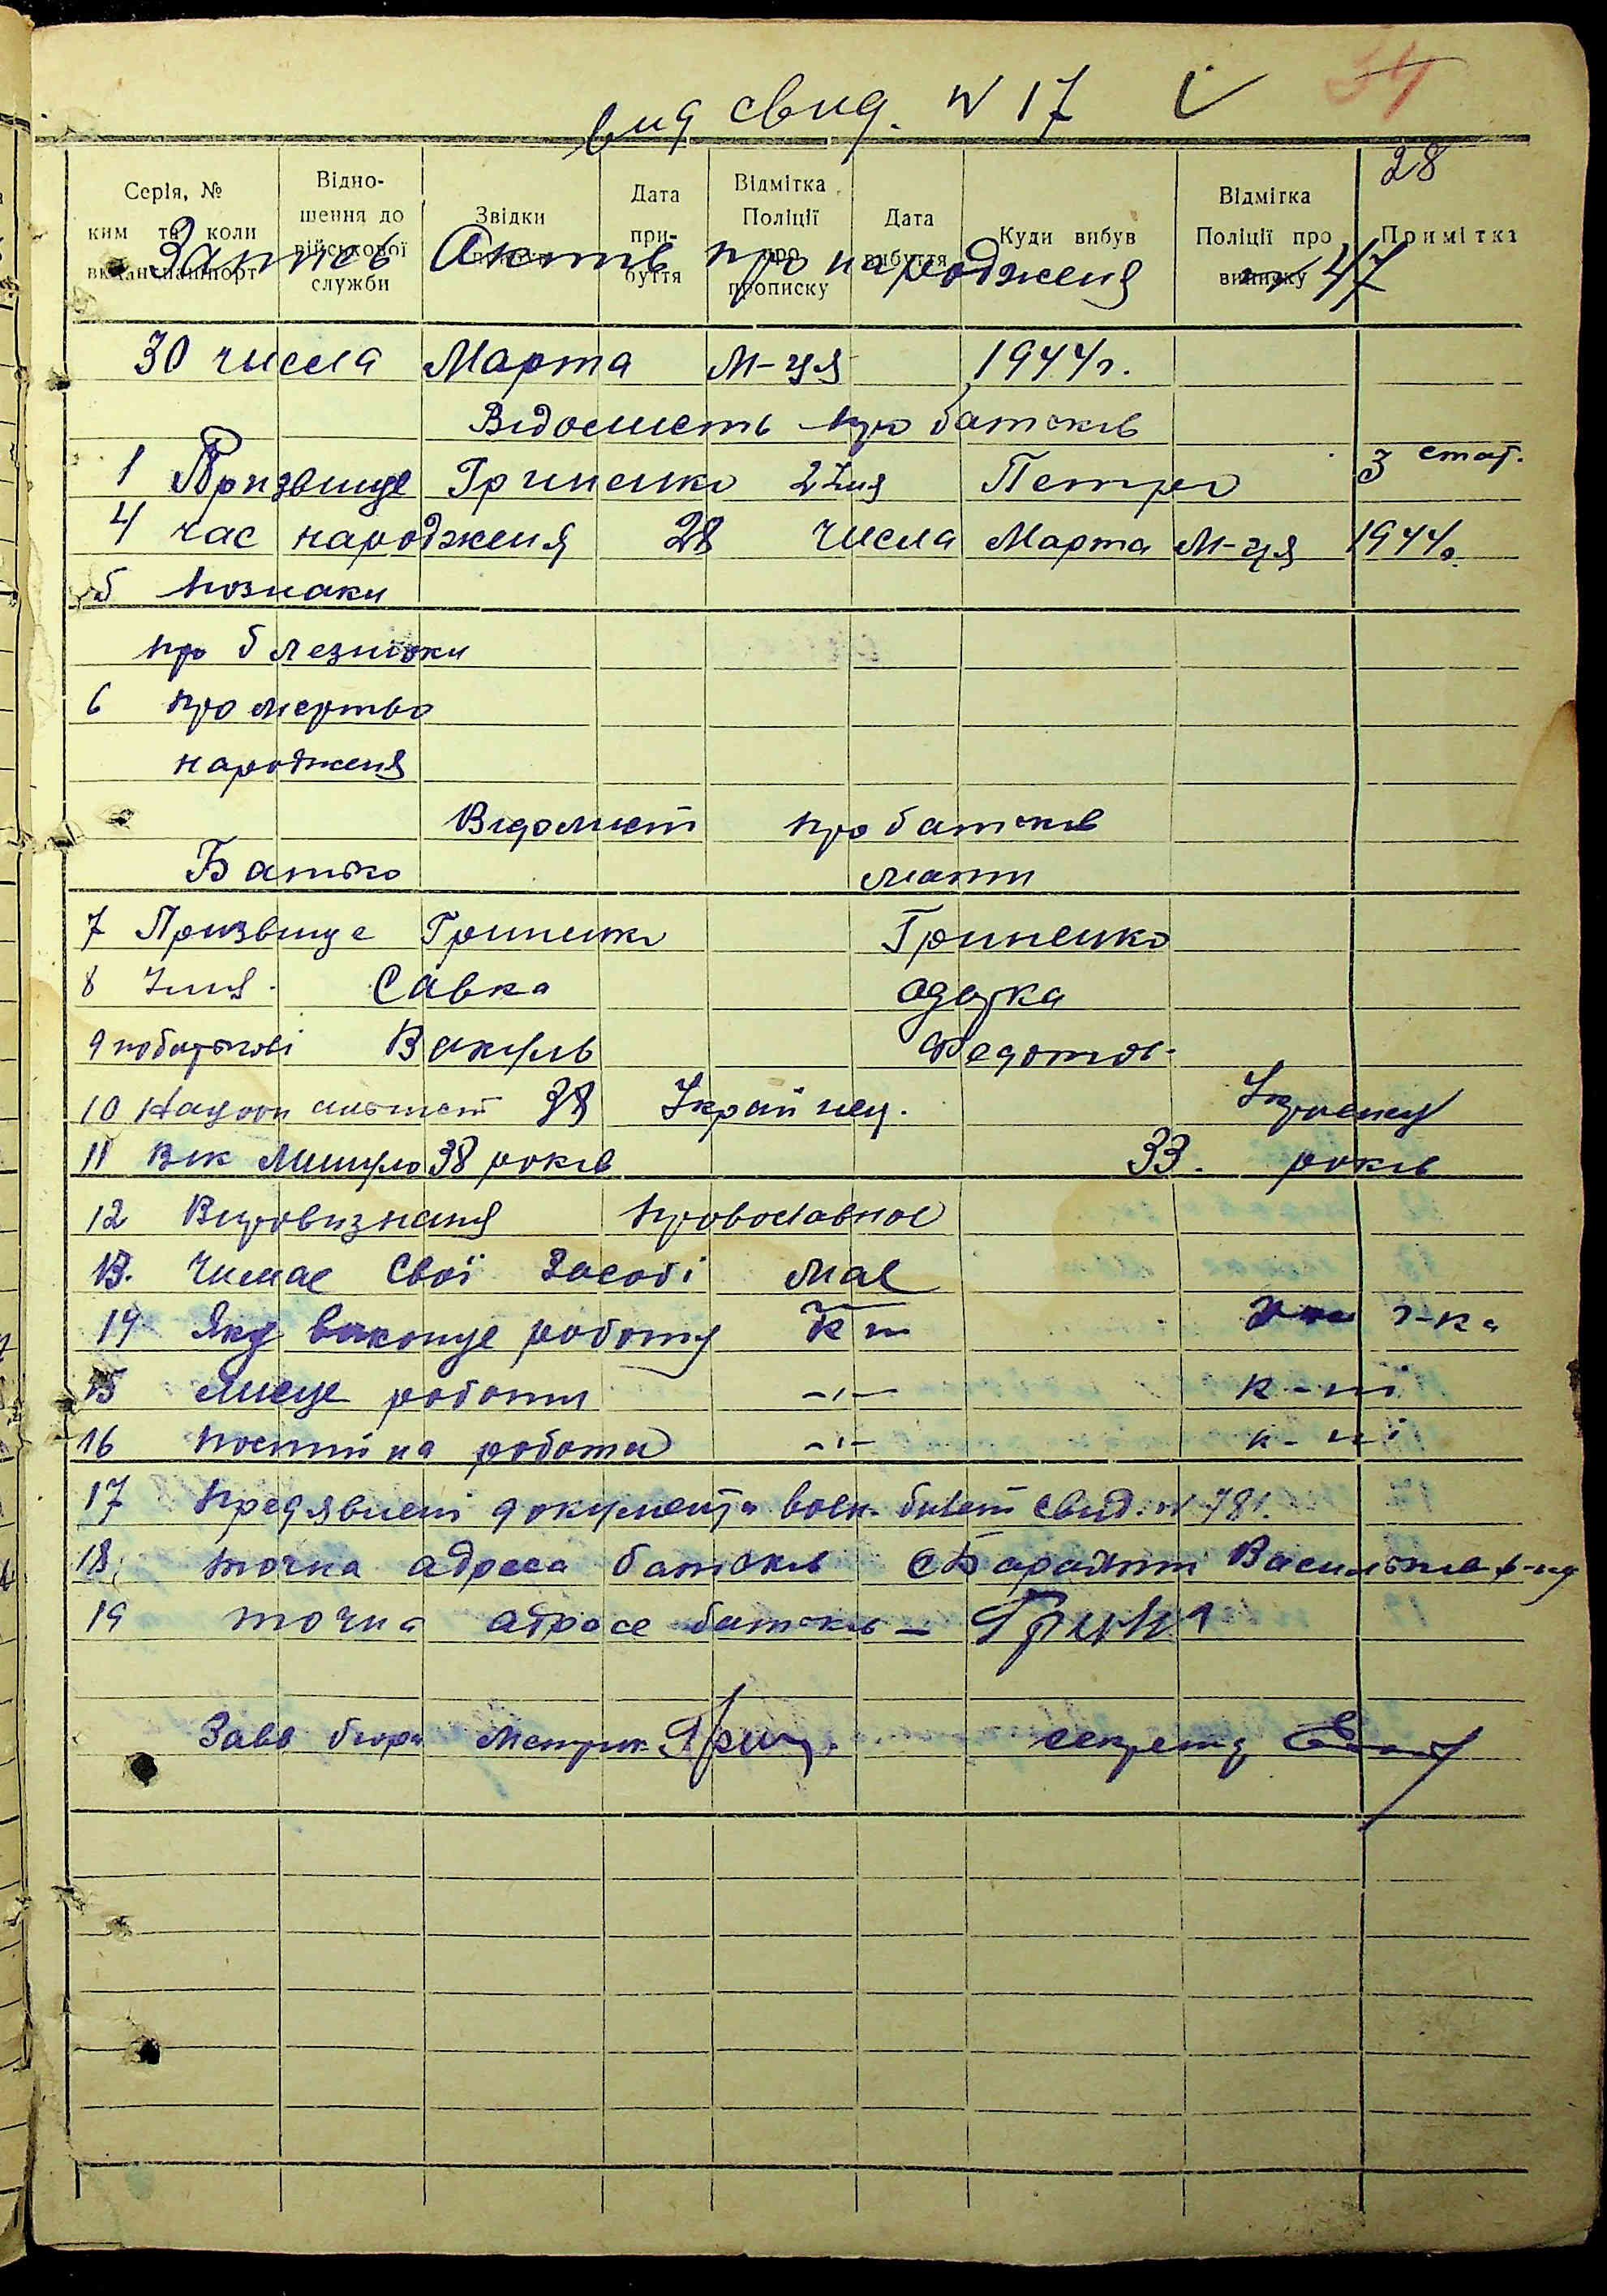 54
вид свид. N 17
28
Серія, № ким та коли виданий пашпорт
Відношення до військової служби
Звідки прибув
Дата прибуття
Відмітка Поліції про прописку
Дата вибуття
Куди вибув
Відмітка Поліції про виписку
Примітка
Запись Актів про народженя 47
30 числа Марта М-ця 1944г.
Відомисть про батьків
1 Призвище Гриненко 2 Імя Петро 3 стат.
4 час народженя 28 числа Марта М-ця 1944г.
5 познаки
про блезнюки
6 про мертво
народженя
Відомист про батьків
Батько мати
7 Призвище Гриненко Гриненко
8 Імя Савка одарка
9 побатькові Вакуль Федотов.
10 Национальност 38 Украйнец.
11 Вік Минуло 38 років 33. років
12 Віровизнаня провославное
13. Чимае Свої Засобі мае
14 Яку виконуе роботу к-ги
15 мисце роботи -"- к-ги
16 постійна робота -"- к-гі
17 предявлені документа воен. билет свид. N 781.
18 точна адреса батьків с Барахти Васильків р-ну
19 точна адресе батьків -
Завв бюро Метрик секретар